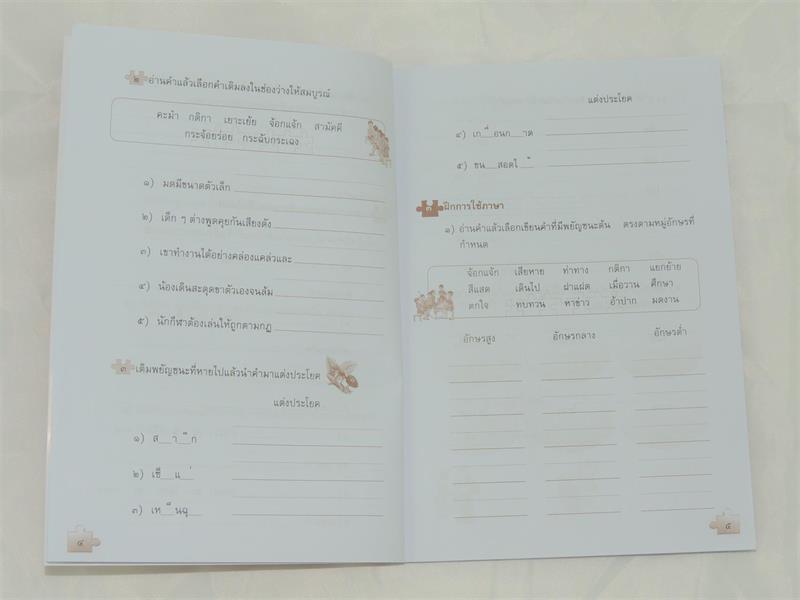 ๒ อ่านคำแล้วเลือกคำเติมลงในช่องว่างให้สมบูรณ์
คะมำ กติกา เยาะเย้ย จ้อกแจ้ก สามัคคี
กระจ้อยร่อย กระฉับกระเฉง
๑) มดมีขนาดตัวเล็ก
๒) เด็ก ๆ ต่างพูดคุยกันเสียงดัง
๓) เขาทำงานได้อย่างคล่องแคล่วและ
๔) น้องเดินสะดุดขาตัวเองจนล้ม
๕) นักกีฬาต้องเล่นให้ถูกตามกฎ
๓ เติมพยัญชนะที่หายไปแล้วนำคำมาแต่งประโยค
แต่งประโยค
๑) ส__า__ึก
๒) เชื__แ__่
๓) เห__็นฉุ__
๔
แต่งประโยค
๔) เก__ื่อนก__าด
๕) ขน__สอดไ__้
๓ ฝึกการใช้ภาษา
๑) อ่านคำแล้วเลือกเขียนคำที่มีพยัญชนะต้น ตรงตามหมู่อักษรที่
กำหนด
จ้อกแจ้ก เสียหาย ท่าทาง กติกา แยกย้าย
สีแสด เดินไป ฝาแฝด เมื่อวาน ศึกษา
ตกใจ ทบทวน หาข่าว อ้าปาก มดงาน
อักษรสูง อักษรกลาง อักษรต่ำ
๕